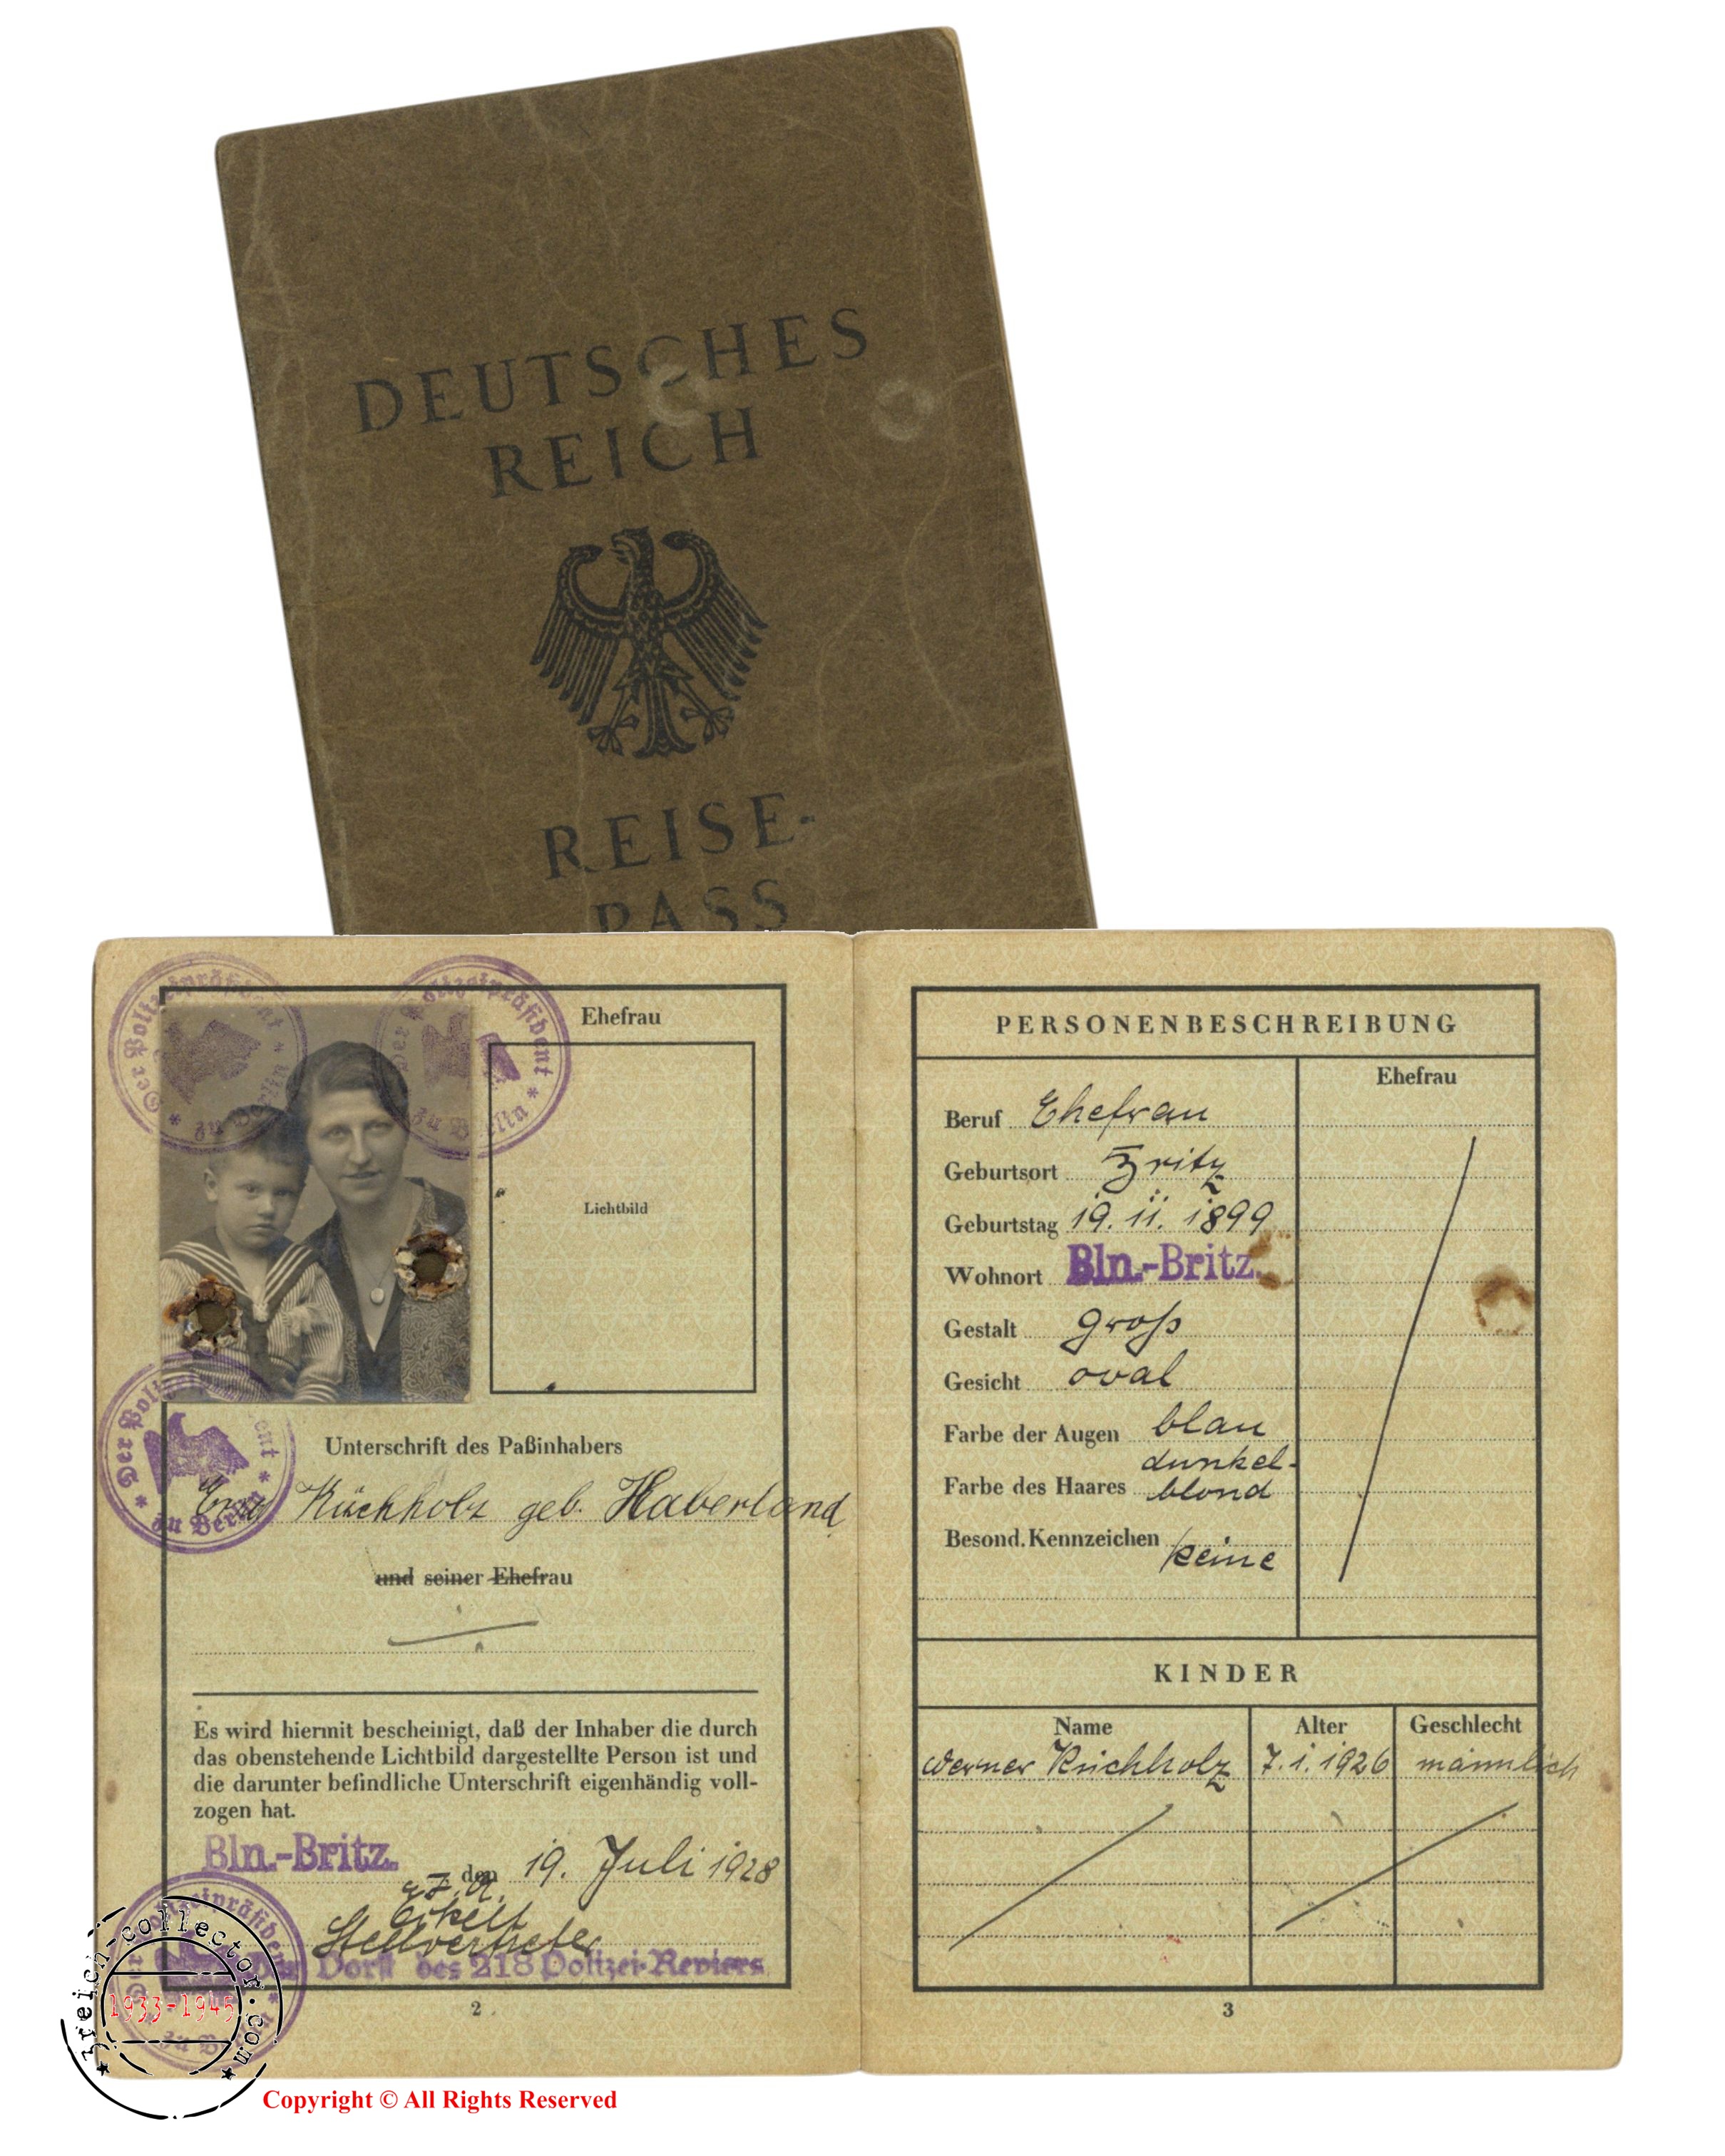 DEUTSCHES
REICH
REISE-
PASS
Der Polizeipräsident * zu Berlin *
Der Polizeipräsident * zu Berlin *
Ehefrau
Lichtbild
Der Polizeipräsident * zu Berlin *
Unterschrift des Paßinhabers
Küchholz geb. Haberland
und seiner Ehefrau
Es wird hiermit bescheinigt, daß der Inhaber die durch
das obenstehende Lichtbild dargestellte Person ist und
die darunter befindliche Unterschrift eigenhändig voll-
zogen hat.
Bln.-Britz. den 19. Juli 1928
Stellvertreter
des 218 Polizei-Reviers
Der Polizeipräsident * zu Berlin *
2
PERSONENBESCHREIBUNG
Ehefrau
Beruf Ehefrau
Geburtsort
Geburtstag 19. 11. 1899
Wohnort Bln.-Britz.
Gestalt groß
Gesicht oval
Farbe der Augen blau
Farbe des Haares dunkel-
blond
Besond. Kennzeichen keine
KINDER
Name Alter Geschlecht
Werner Küchholz 7.1.1926 männlich
3
3reich-collector.com
1933-1945
Copyright © All Rights Reserved